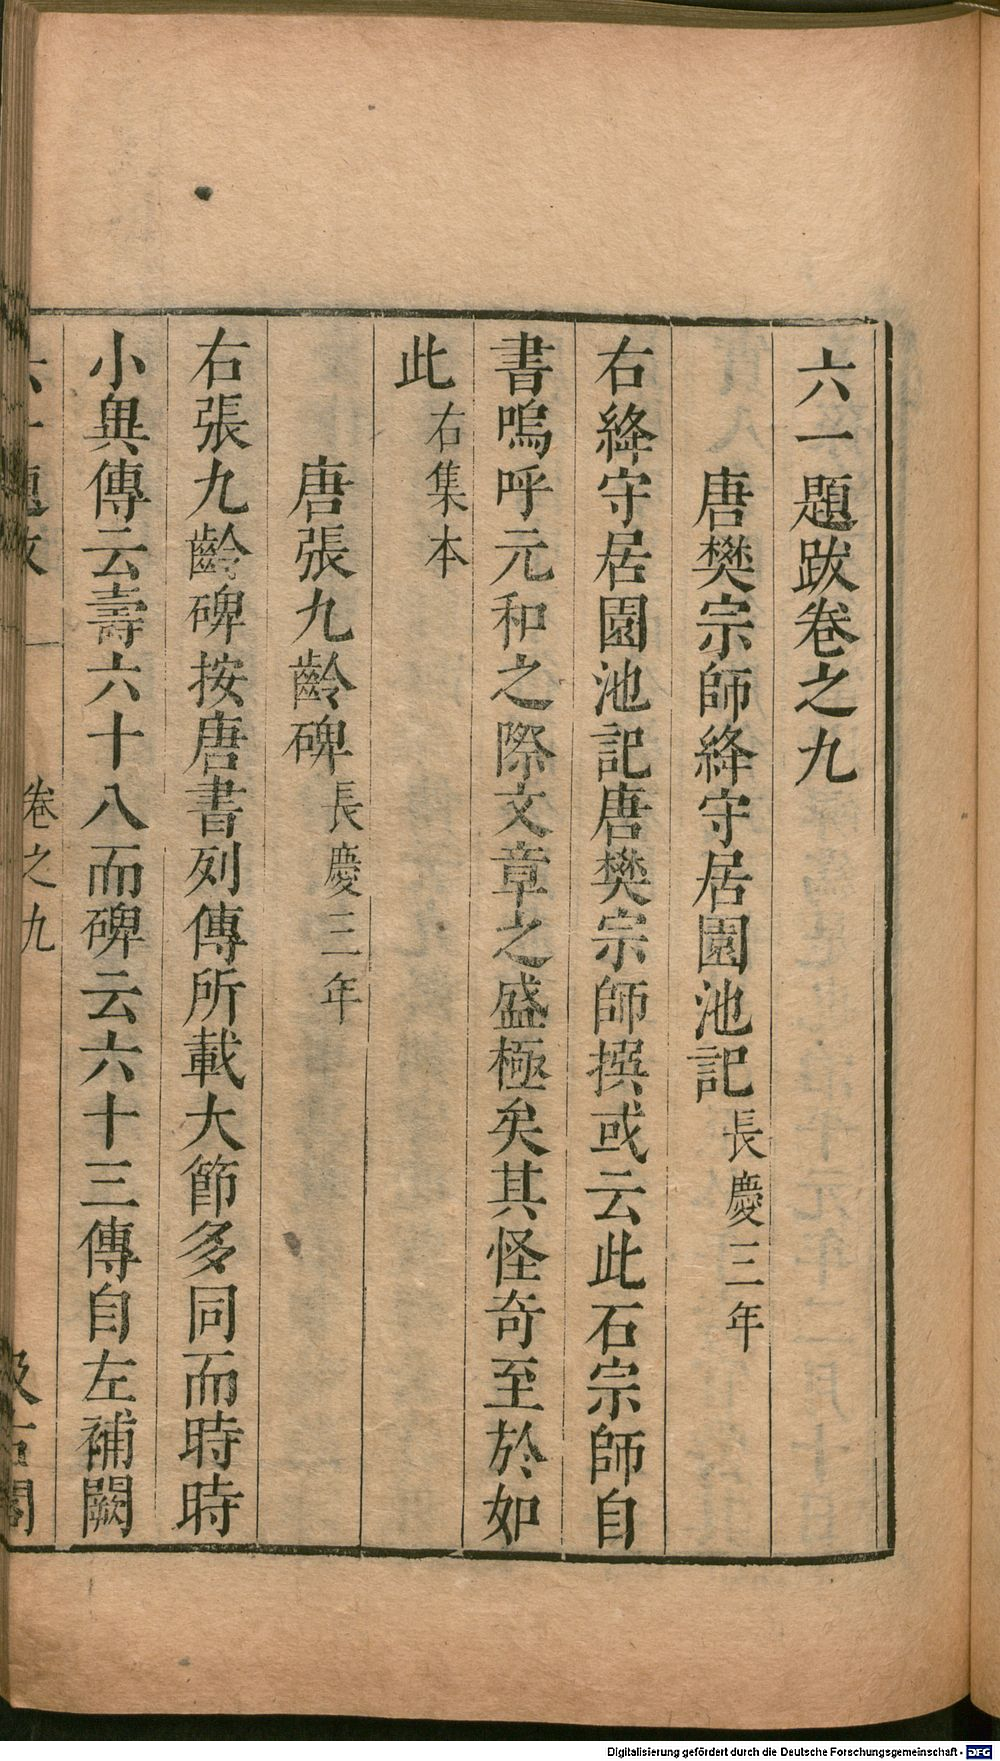 六一題跋卷之九
唐樊宗師絳守居園池記長慶三年
右絳守居園池記唐樊宗師撰或云此石宗師自
書嗚呼元和之際文章之盛極矣其怪奇至於如
此右集本
唐張九齡碑長慶三年
右張九齡碑按唐書列傳所載大節多同而時時
小異傳云壽六十八而碑云六十三傳自左補闕
六一題跋 卷之九 汲古閣
Digitalisierung gefördert durch die Deutsche Forschungsgemeinschaft - DFG